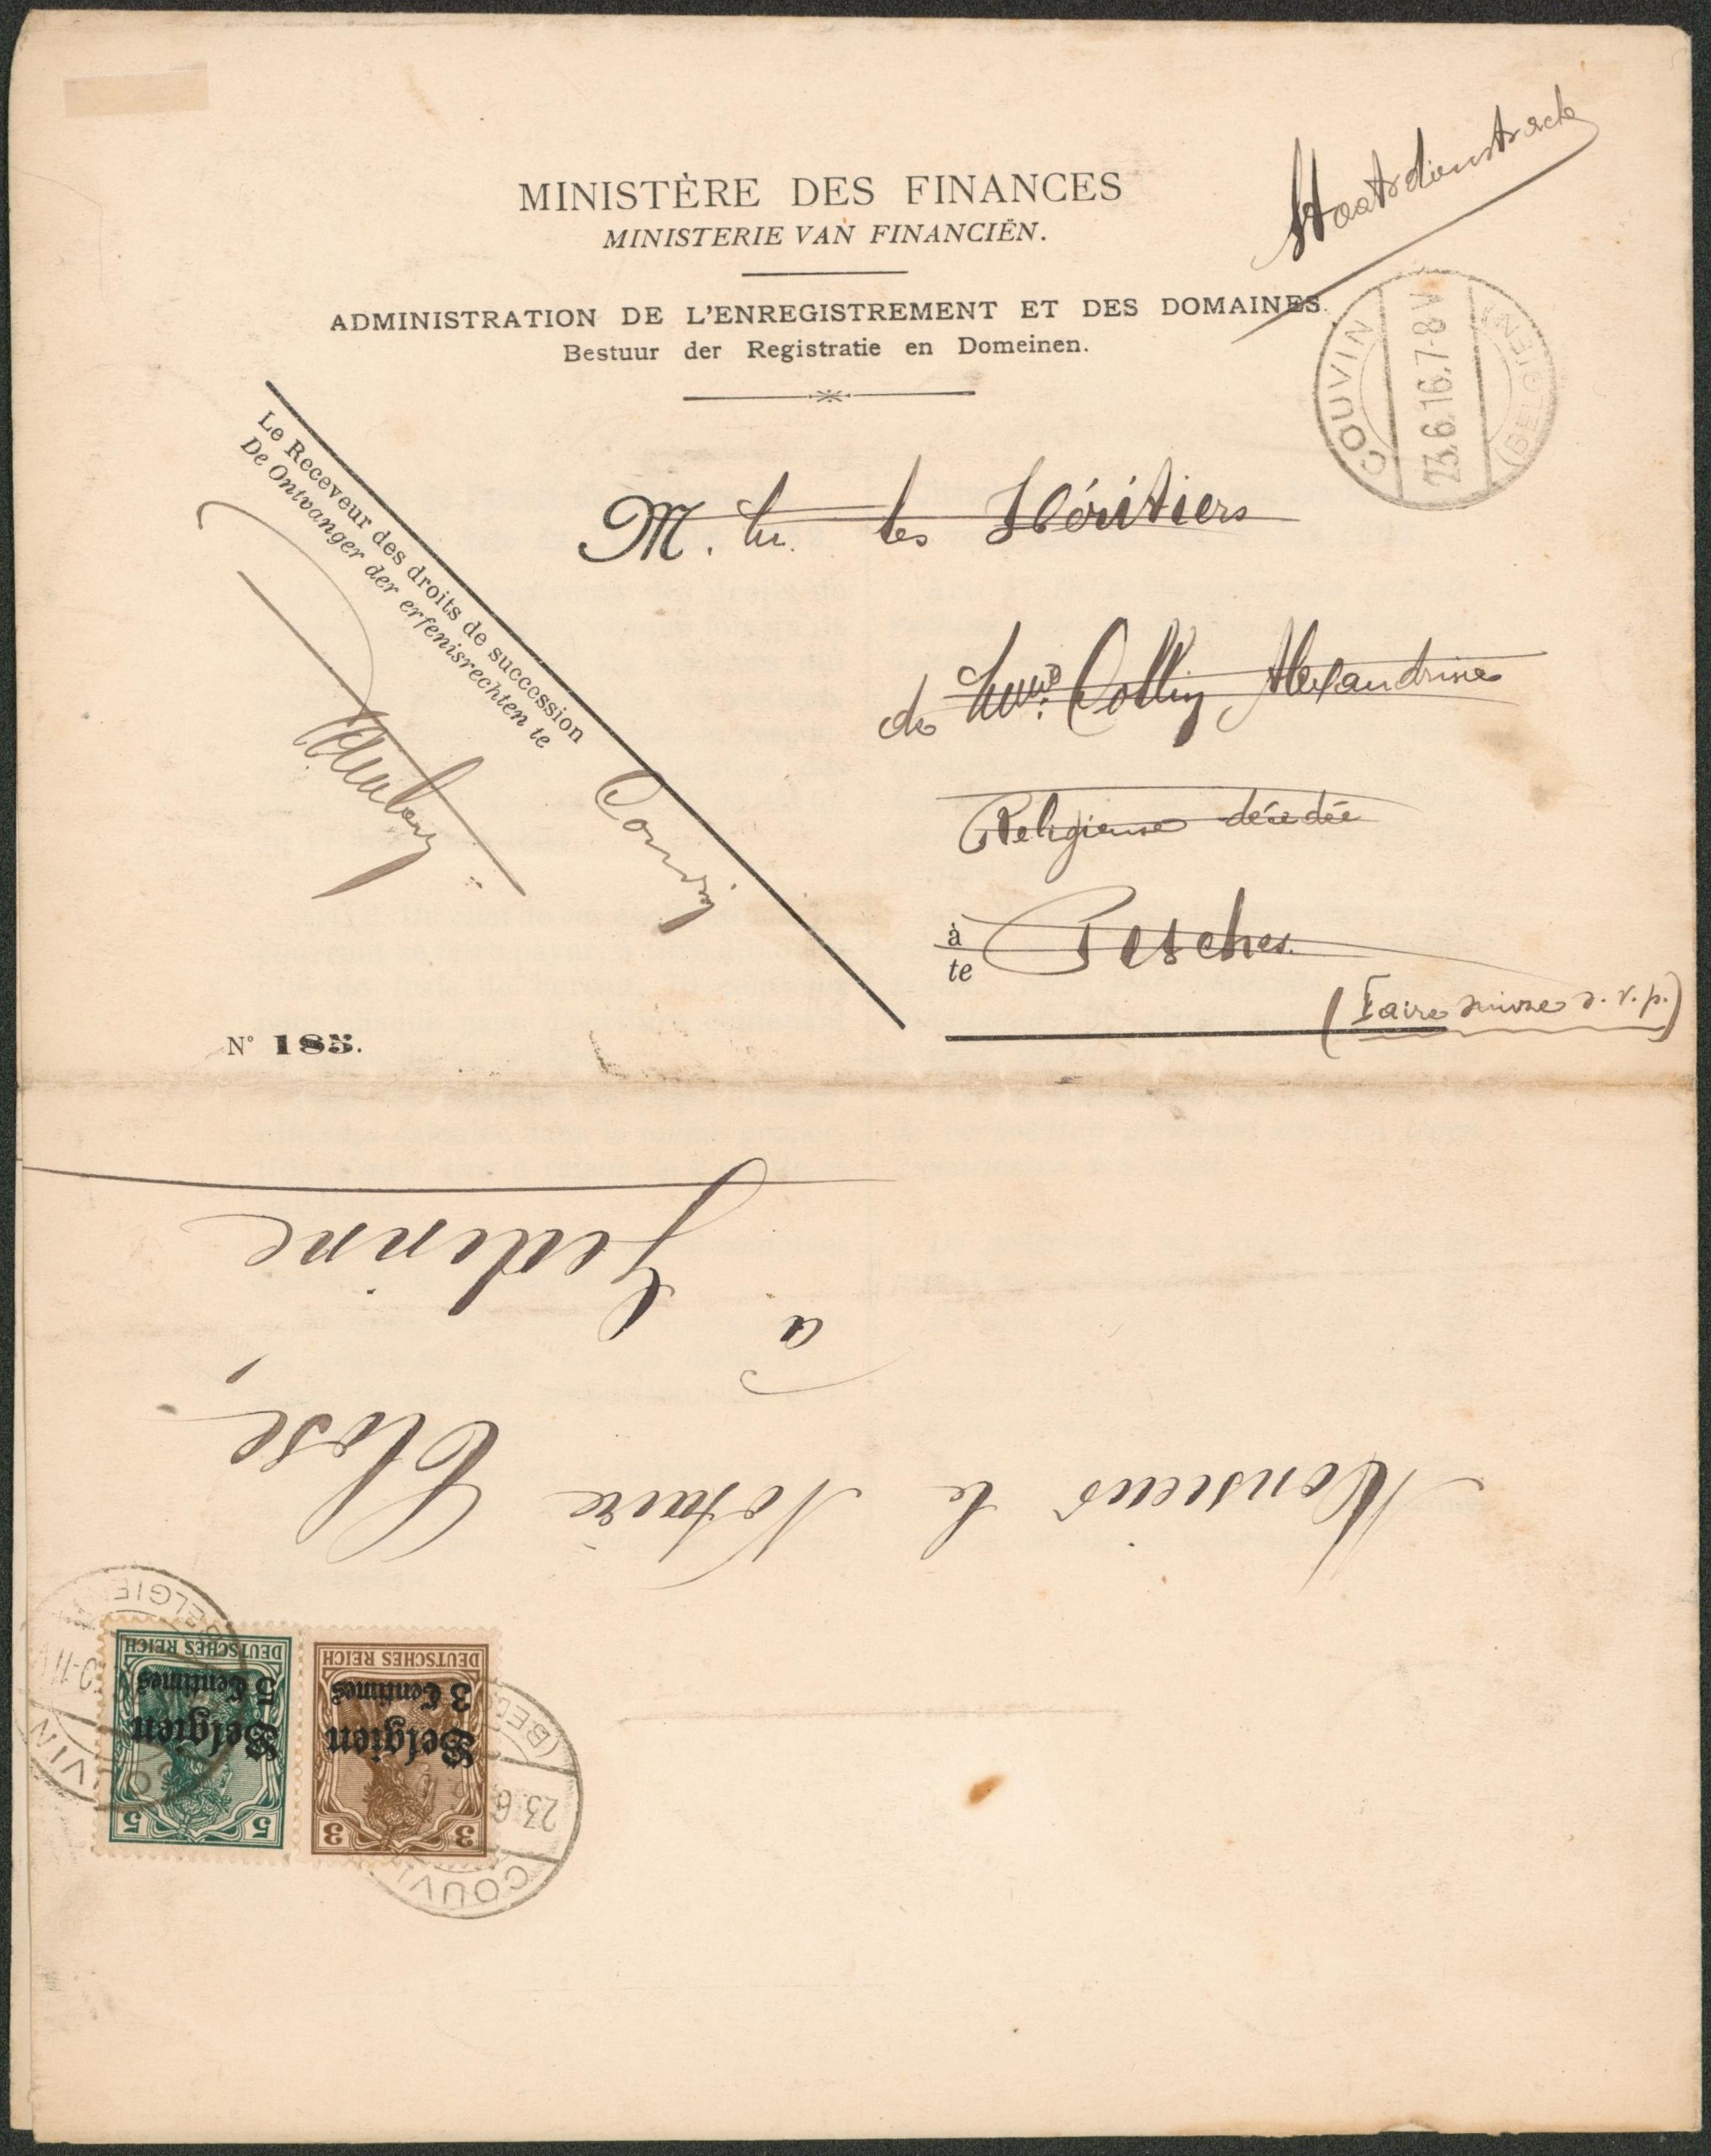 MINISTÈRE DES FINANCES
MINISTERIE VAN FINANCIËN.
ADMINISTRATION DE L'ENREGISTREMENT ET DES DOMAINES.
Bestuur der Registratie en Domeinen.
COUVIN
23.6.16.7-8V
(BELGIEN)
Le Receveur des droits de succession
De Ontvanger der erfenisrechten te
Couvin
M. les Héritiers
de Collin Alexandrine
Religieuse décédée
à
te
Pesches.
(Faire suivre s.v.p.)
N° 185.
Monsieur le Notaire Close,
à
Gedinne
DEUTSCHES REICH
Belgien
3 Centimes
3 3
DEUTSCHES REICH
Belgien
5 Centimes
5 5
COUVI
23.6
(BEL
COUVIN
BELGIE